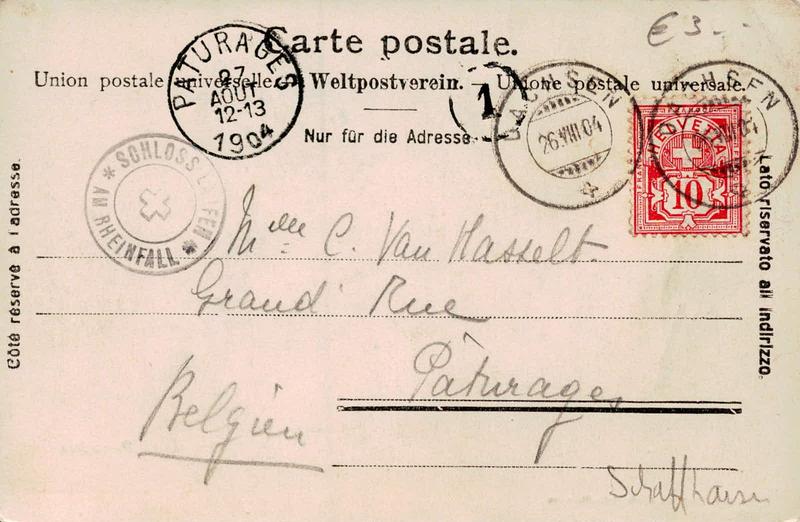 € 3.--
Carte postale.
Union postale universelle. — Weltpostverein. — Unione postale universale.
Nur für die Adresse.
PATURAGES
27
AOUT
12-13
1904
1
DACHSEN
26.VIII.04
DACHSEN
VIII.04
HELVETIA
10
SCHLOSS LAUFEN
* AM RHEINFALL *
Côté réservé à l'adresse.
Lato riservato all' indirizzo.
Mlle C. Van Hasselt.
Grand' Rue
Pâturages
Belgien
Schaffhausen